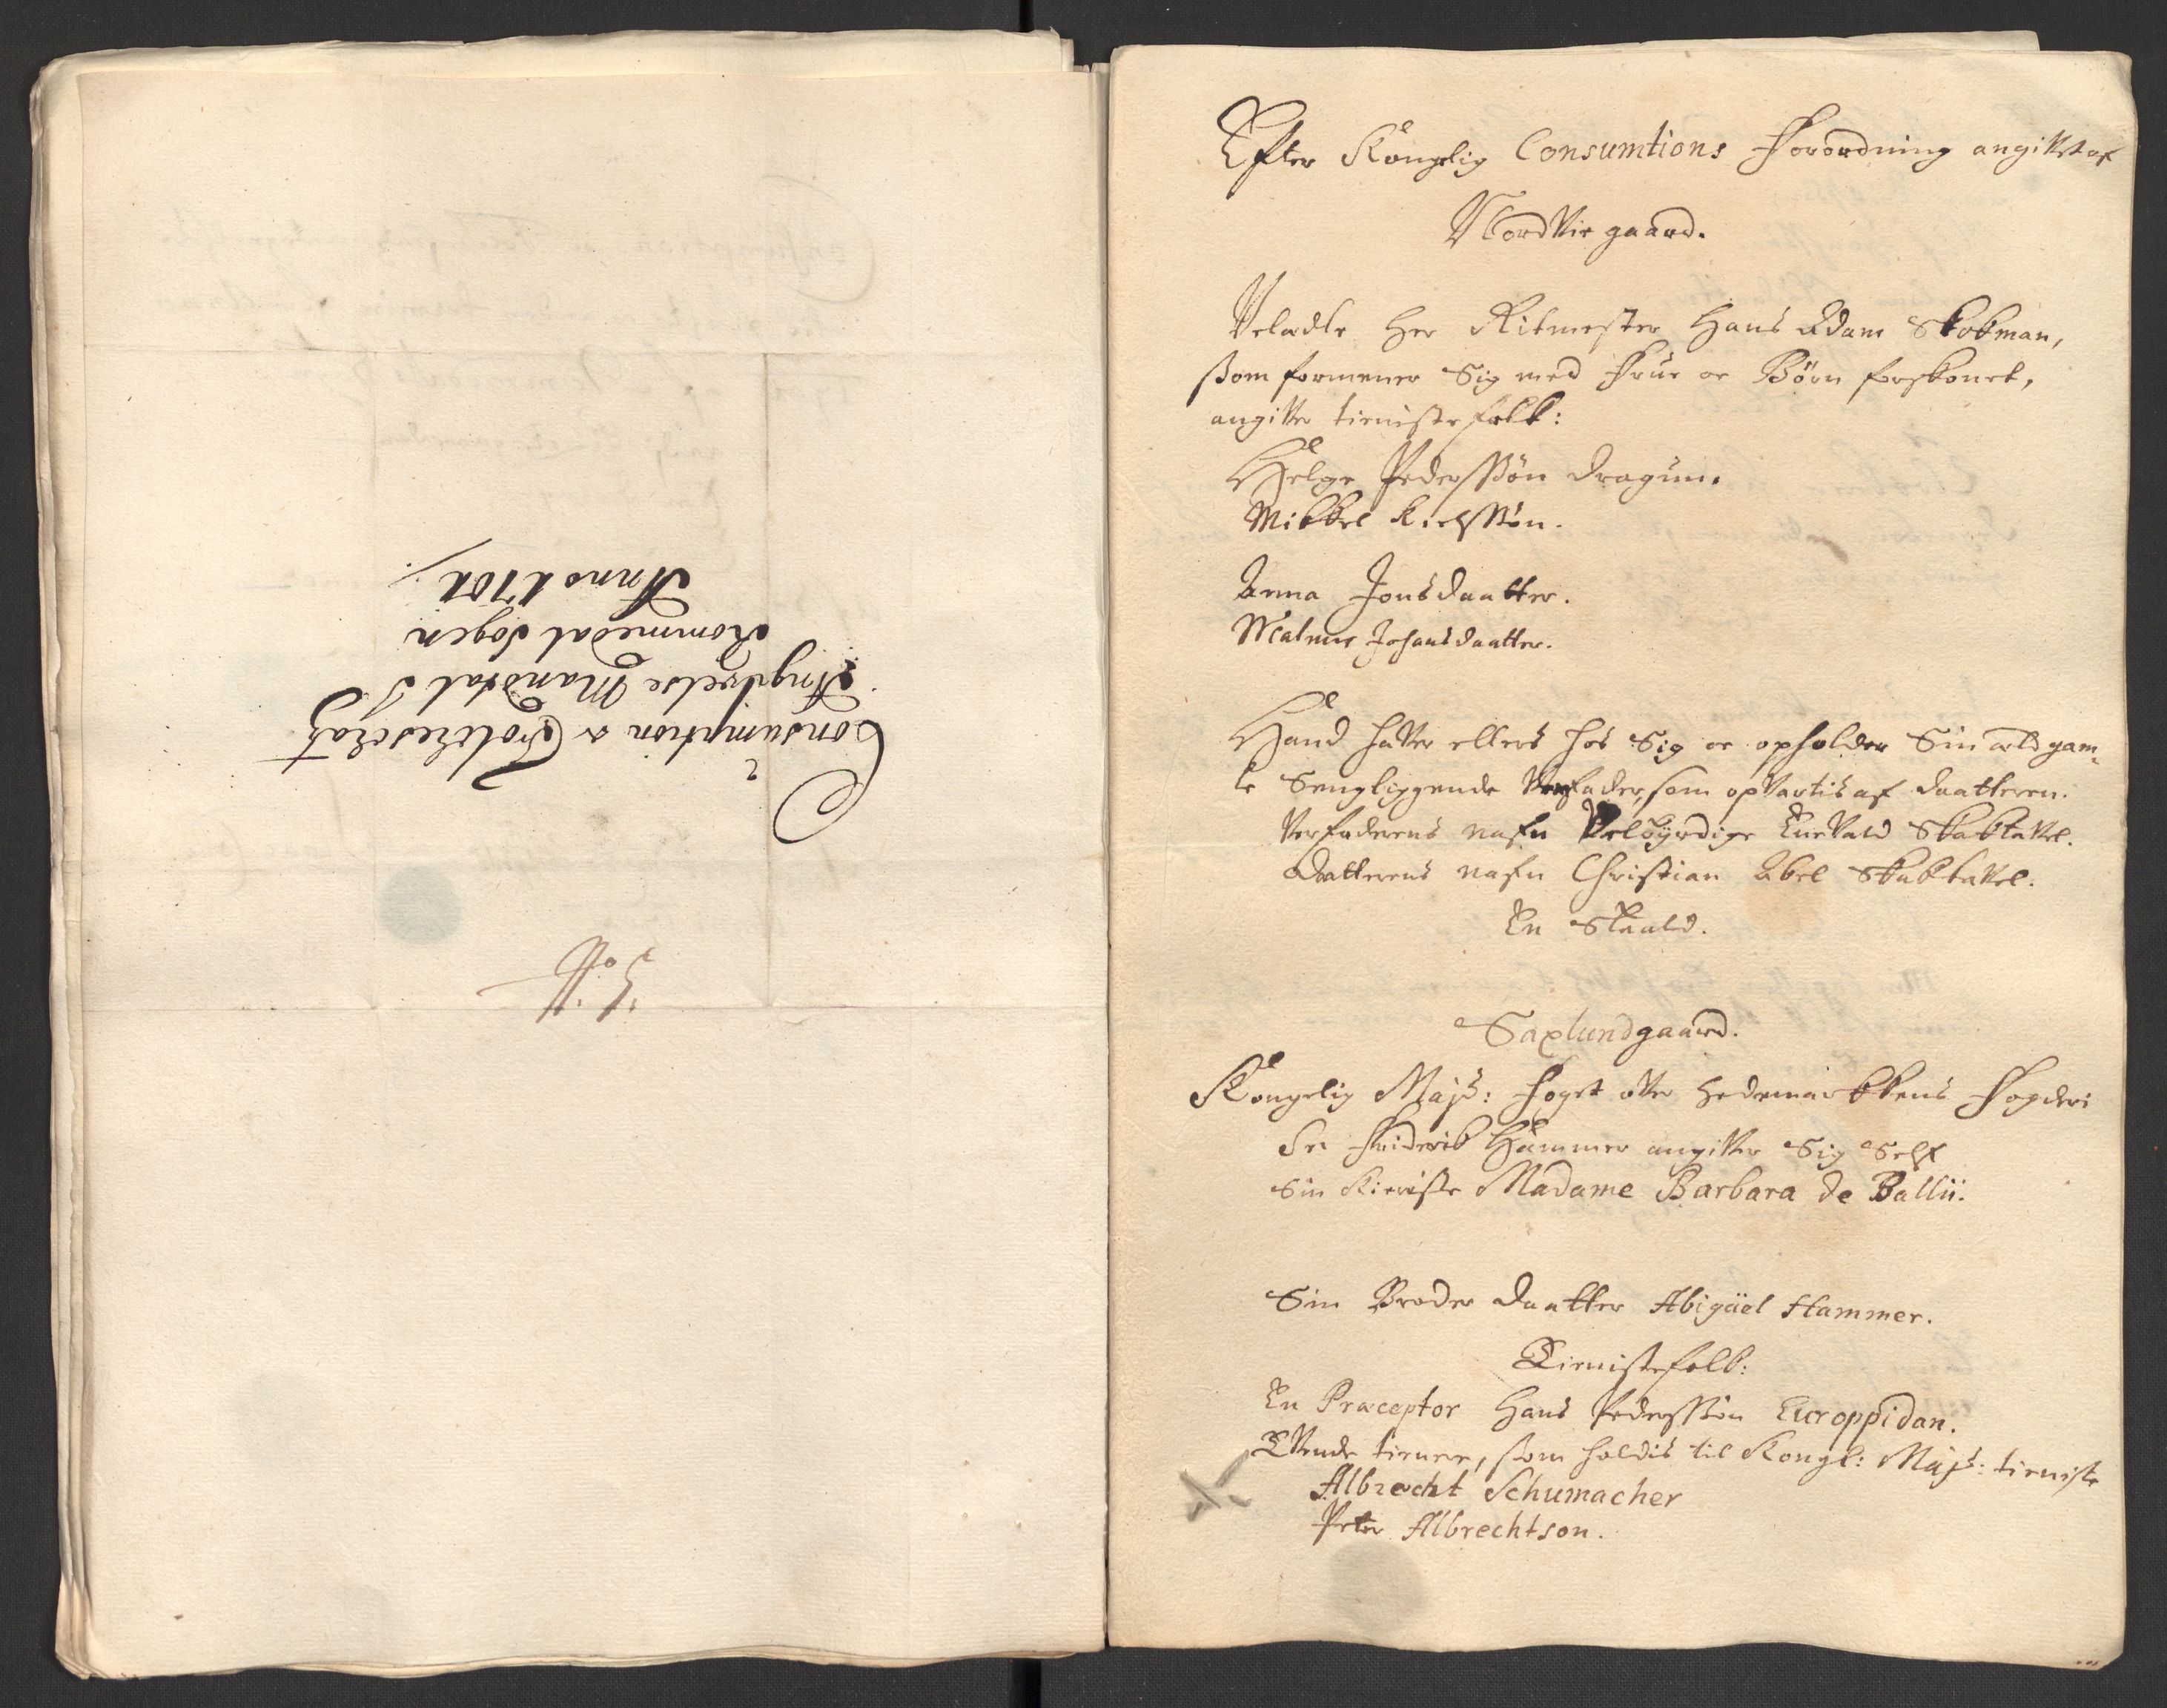 Consumption & Folcheschatz
Angifvelse Mandtal I
Rommedal Sogen
Anno 1702
Efter Kongelig Consumtions Forordning angifvet af
Nordvie gaard.
Veladle Her Ritmester Hans Adam Skokman,
ßom formener Sig med Frue oc Børn forskonet,
angifver tieniste folk:
Helge Pederßøn dragun.
Mikkel Nielßøn.
Anna Jonsdaatter.
Malene Johansdaatter.
Hand hafver ellers hos Sig oc opholder Sin æld gam¬
le Sengliggende Verfader, som opvartis af daatteren.
Verfaderens nafn Velbyrdige Enevald Skaktavel.
daatterens nafn Christian Abel Skaktavel.
En Skald.
Saxlundgaard.
Kongelig Majs: Foget ofver Hedemarkkens Fogderi
Sr Friderik Hammer angifver Sig Self
Sin Kieriste Madame Barbara de Ballii.
Sin Broder daatter Abigäel Hammer.
Tienistefolk:
En Præceptor Hans Pederßøn Europpidan.
Tvende tienere, som holdis til Kongl: Majs: tieniste
Albrecht Schumacher
Peter Albrechtson.